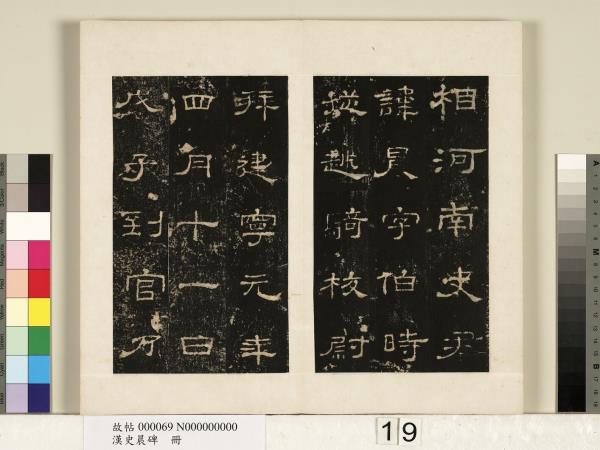 相河南史君
諱晨字伯時
從越騎校尉
拜建寧元年
四月十一日
戊子到官乃
故帖 000069 N000000000
漢史晨碑 冊
19